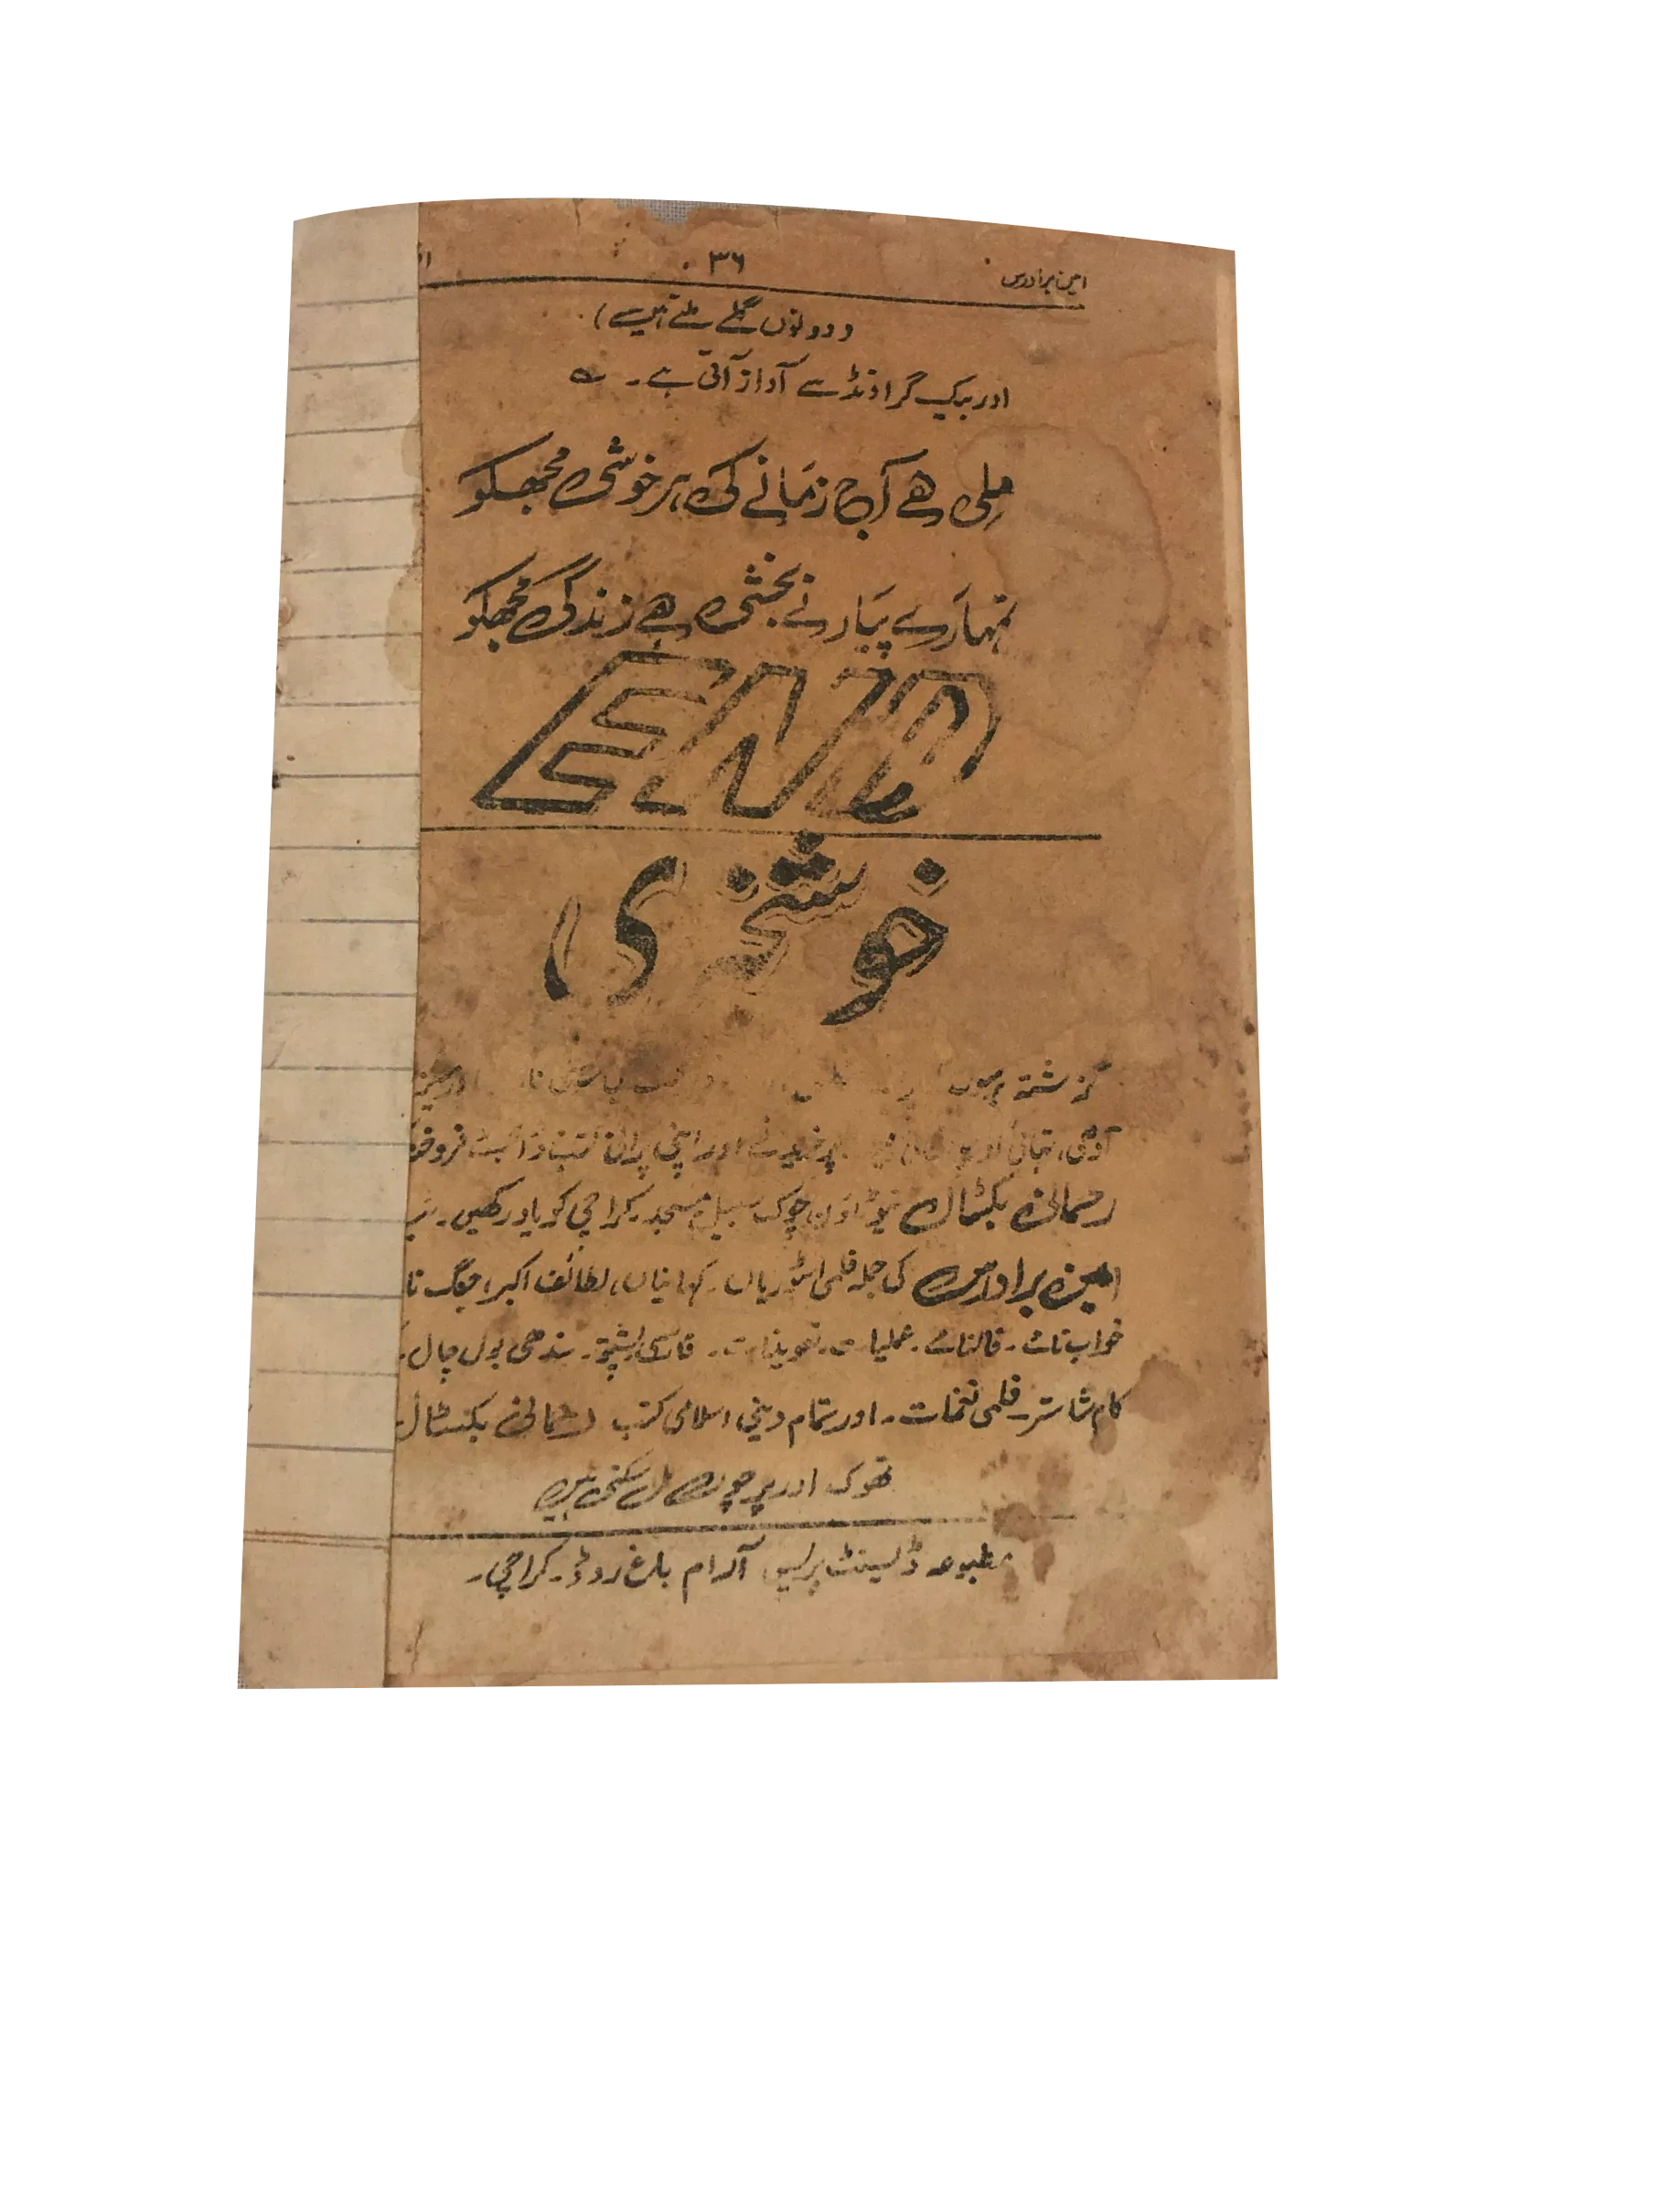 امین برادرس ۳۶
(دونوں گلے ملتے ہیں)
اور بیک گراونڈ سے آواز آتی ہے۔
ملی ہے آج زمانے کی ہر خوشی مجھکو
تمہارے پیار نے بخشی ہے زندگی مجھکو
END
خوشخبری
گزشتہ
اور اپنی پرانی
رحمانی بکسٹال نیوٹاون چوک سبیل مسجد۔ کراچی کو یاد رکھیں۔
امین برادرس کی جملہ فلمی اسٹوریاں۔ کہانیاں، لطائف اکبر، جنگ نا
خواب نامے۔ فالنامے۔ عملیات۔ تعویذات۔ فارسی، پشتو۔ سندھی بول چال۔
کام شاستر۔ فلمی نغمات۔ اور تمام دینی، اسلامی کتب رحمانی بکسٹال
تھوک اور پرچون مل سکتی ہیں
مطبوعہ ڈیسنٹ پریس آرام باغ روڈ۔ کراچی۔